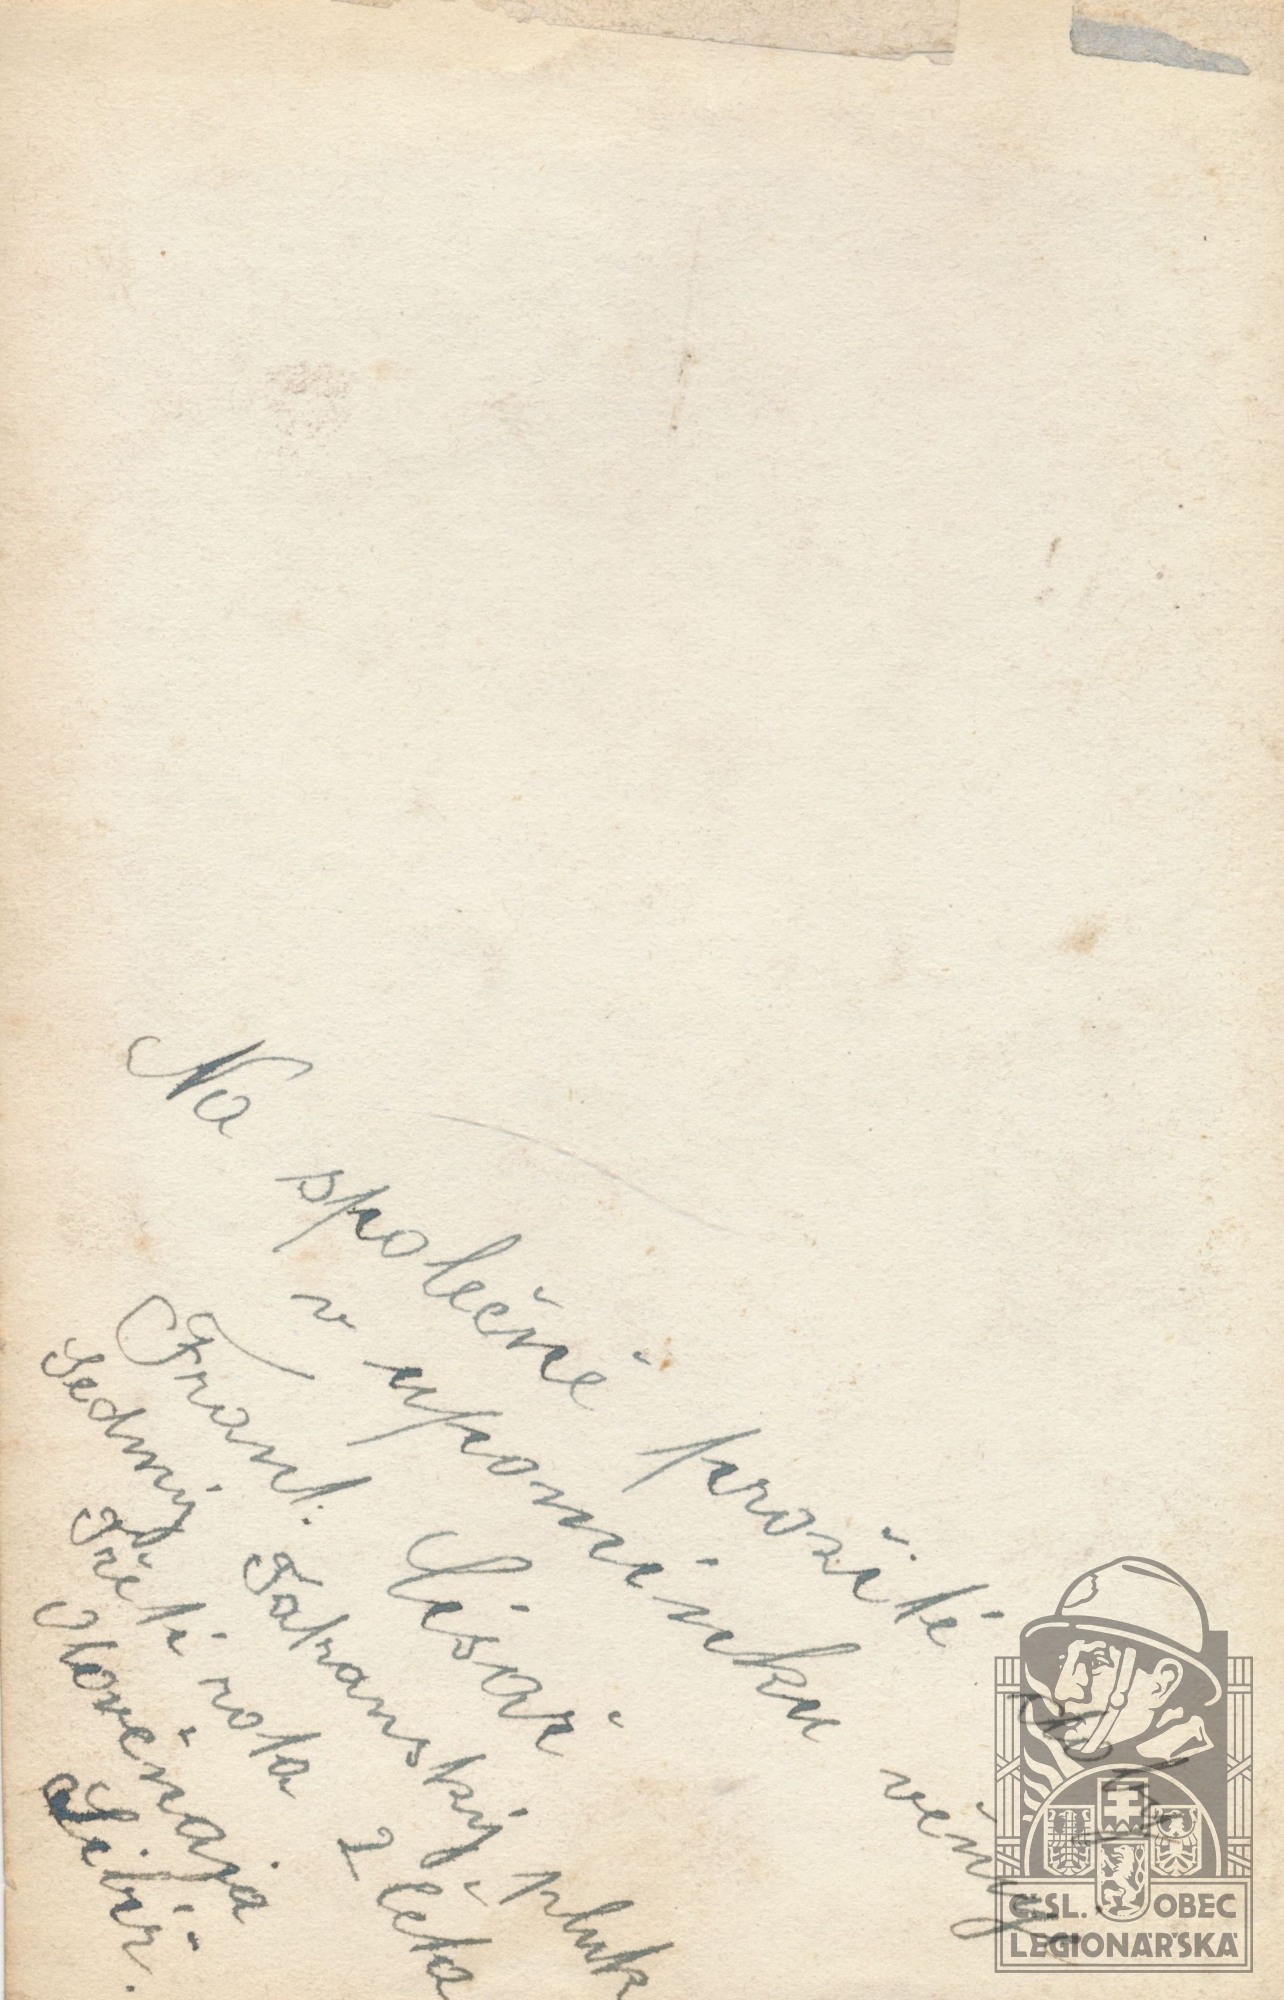 Na společně prožité doby
v upomínku věnuje
Frant. Lisař
Sedmý Tatranský pluk
Třetí rota 2 četa
Otovčnaja
Sibiř.
ČSL. OBEC
LEGIONÁŘSKÁ